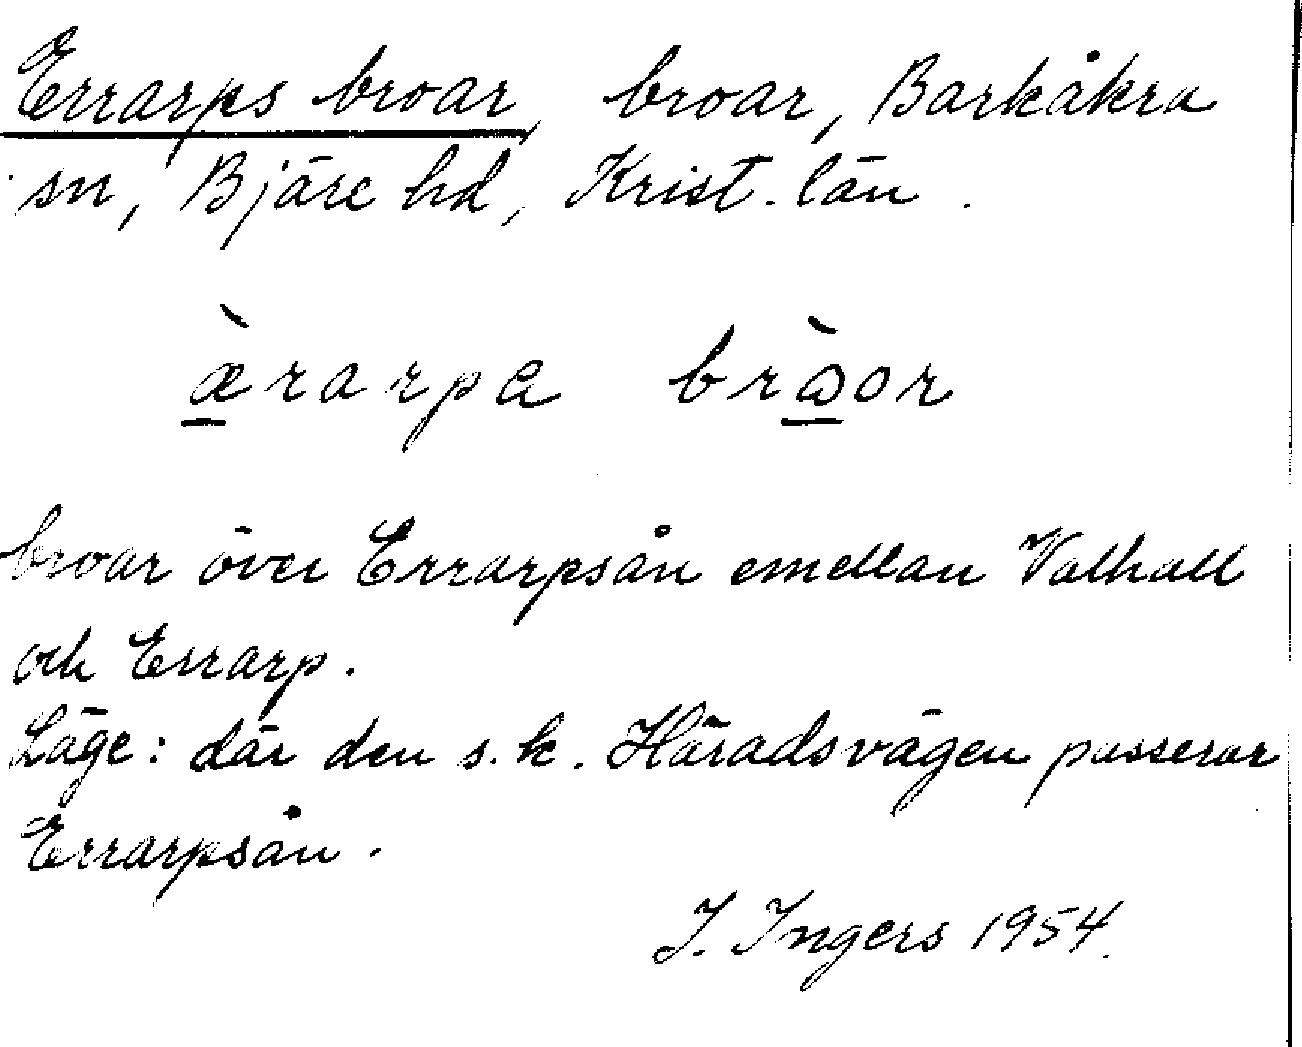 Errarps broar, broar, Barkåkra
sn, Bjäre hd, Krist. län.
æ̀rarpa bròor
broar över Errarpsån emellan Valhall
och Errarp.
Läge: där den s.k. Häradsvägen passerar
Errarpsån.
I. Ingers 1954.